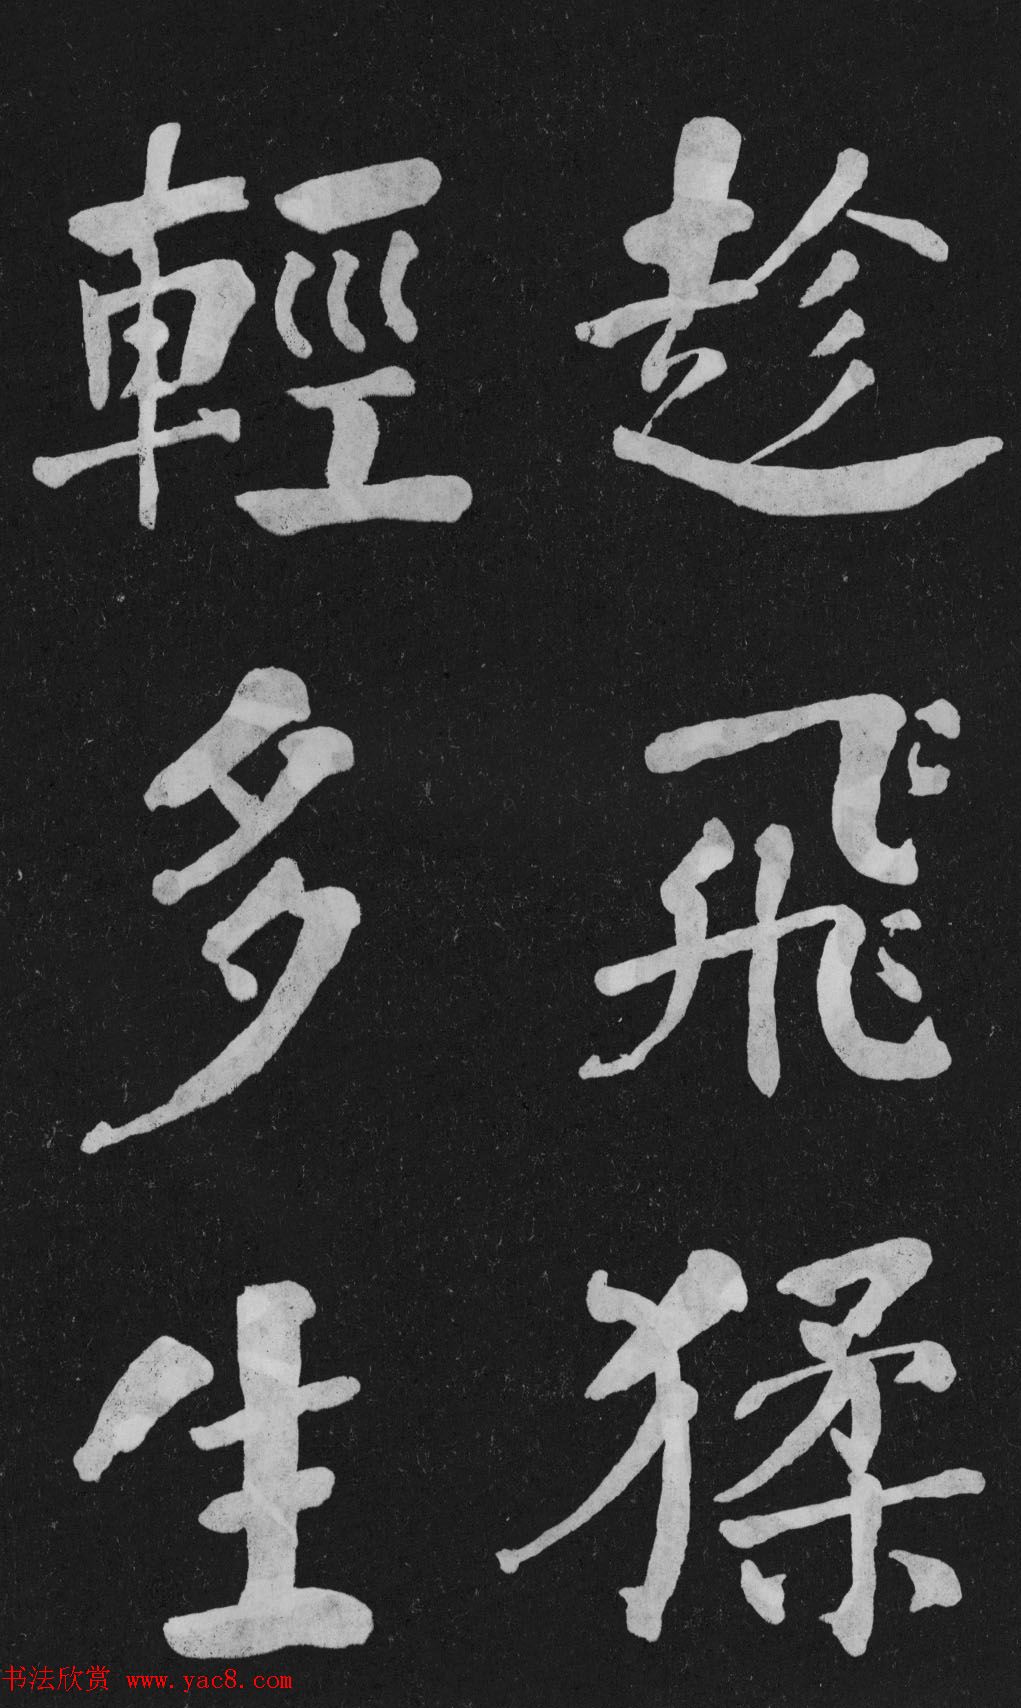 趁飛猱
輕多生
书法欣赏 www.yac8.com